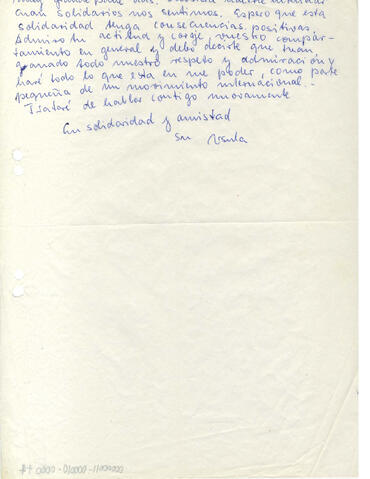 cuan solidarios nos sentimos. Espero que esta
solidaridad tenga consecuencias positivas.
Admiro tu actitud y coraje, vuestro compar-
tamiento en general y debo decirte que
ganado todo nuestro respeto y admiración y
haré todo lo que esta en me poder, como parte
pequeña de un movimiento internacional.-
Trataré de hablar contigo nuevamente
En solidaridad y amistad
su Ursula